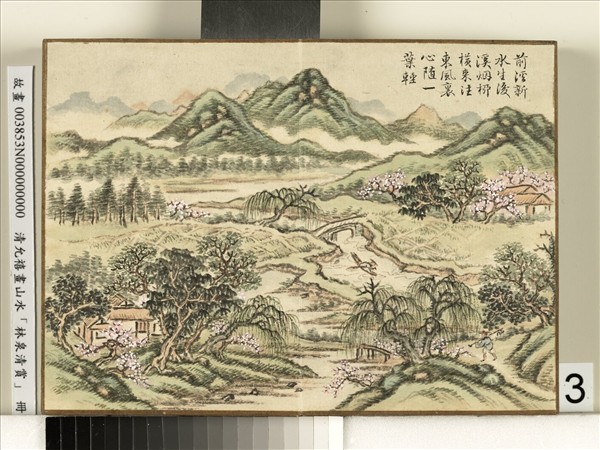 前涇新
水生後
溪烟柳
橫來往
東風裏
心隨一
葉輕
故畫 003853N000000000 清允禧畫山水「林泉清賞」 冊
3